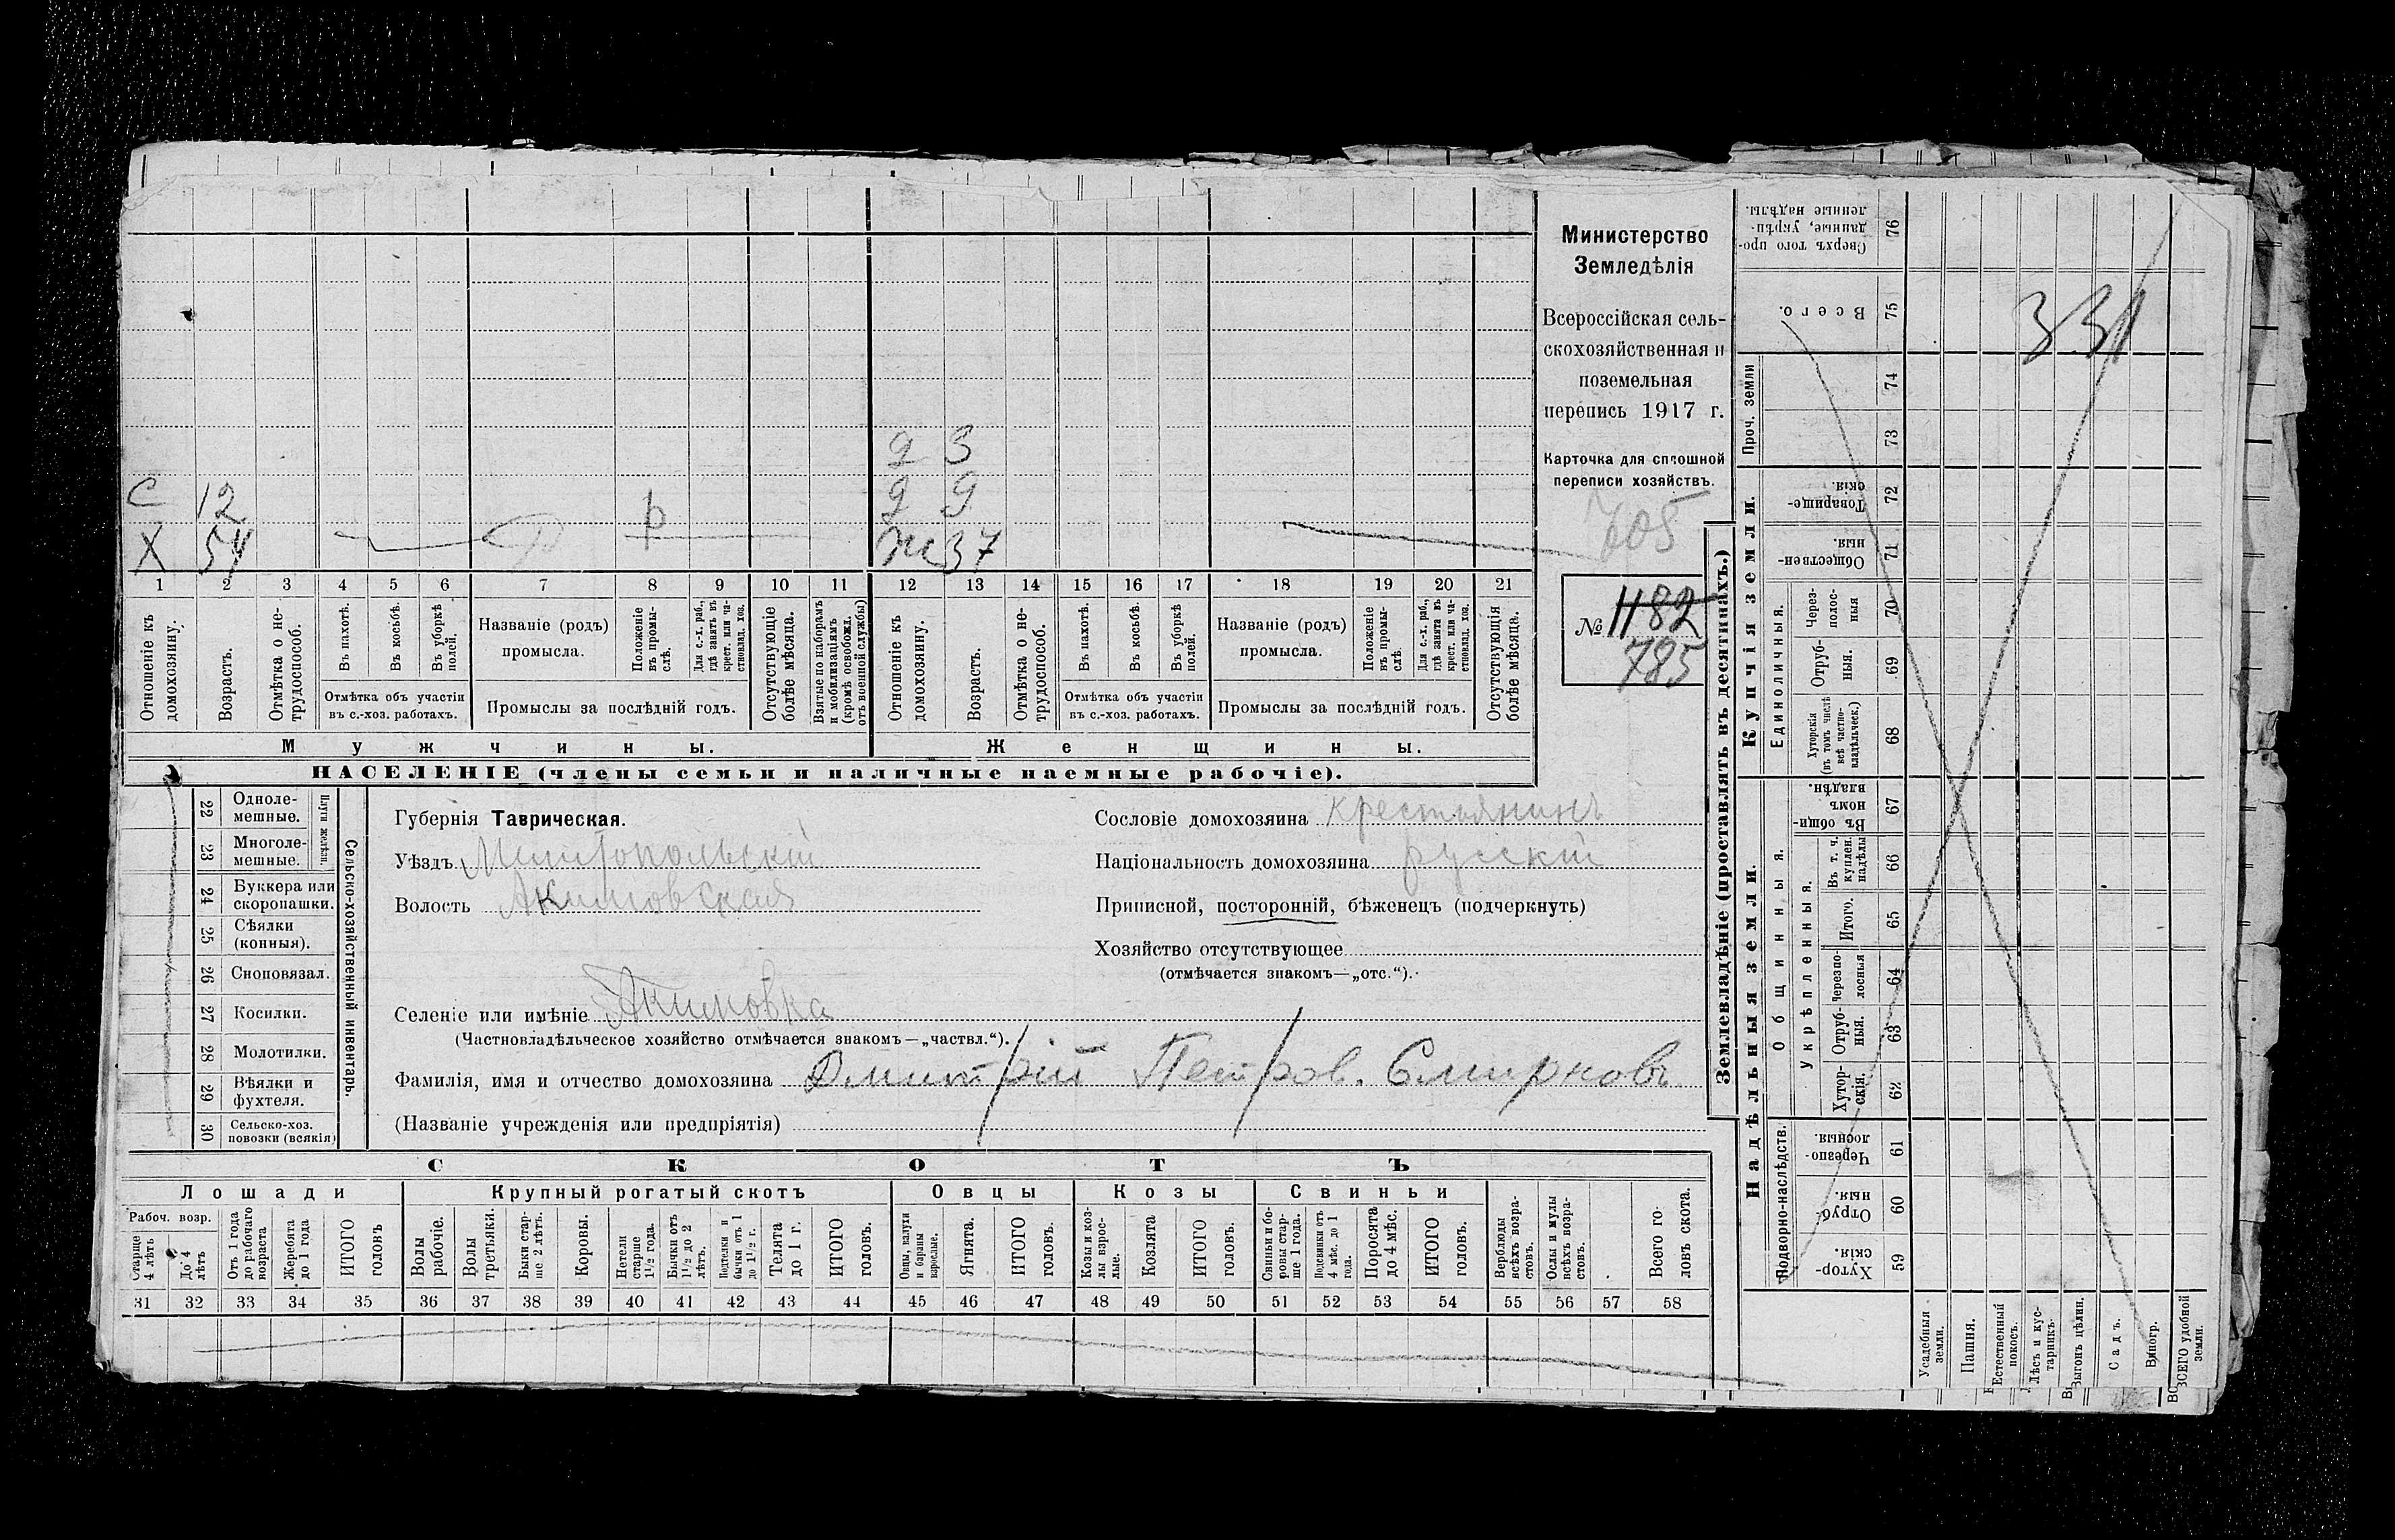 Министерство
Земледѣлія
Всероссійская сель-
скохозяйственная и
поземельная
перепись 1917 г.
Карточка для сплошной
переписи хозяйствъ.
605
№ 1182
785
д 3
С 12 д 9
Х 54 р ж 37
1 2 3 4 5 6 7 8 9 10 11 12 13 14 15 16 17 18 19 20 21
Отношеніе къ домохозяину.
Возрастъ.
Отмѣтка о не-трудоспособ.
Въ пахотѣ.
Въ косьбѣ.
Въ уборкѣ полей.
Отмѣтка объ участіи
въ с.-хоз. работахъ.
Названіе (родъ)
промысла.
Положеніе въ промы-слѣ.
Для с.-х. раб., гдѣ занятъ въ крест. или ча-ствовлад. хоз.
Промыслы за послѣдній годъ.
Отсутствующіе болѣе мѣсяца.
Взятые по наборамъ и мобилизаціямъ (кромѣ освобожд. отъ военной службы)
Отношеніе къ домохозяину.
Возрастъ.
Отмѣтка о не-трудоспособ.
Въ пахотѣ.
Въ косьбѣ.
Въ уборкѣ полей.
Отмѣтка объ участіи
въ с.-хоз. работахъ.
Названіе (родъ)
промысла.
Положеніе въ промы-слѣ.
Для с.-х. раб., гдѣ занята въ крест. или ча-ствовлад. хоз.
Промыслы за послѣдній годъ.
Отсутствующія болѣе мѣсяца.
Мужчины. Женщины.
НАСЕЛЕНІЕ (члены семьи и наличные наемные рабочіе).
22 Одноле-мешные.
23 Многоле-мешные.
Плуги желѣзн.
24 Буккера или скоропашки.
25 Сѣялки (конныя).
26 Сноповязал.
27 Косилки.
28 Молотилки.
29 Вѣялки и фухтеля.
30 Сельско-хоз. повозки (всякія)
Сельско-хозяйственный инвентарь.
Губернія Таврическая.
Уѣздъ Мелитопольскій
Волость Акимовская
Селеніе или имѣніе Акимовка
(Частновладѣльческое хозяйство отмѣчается знакомъ—„частвл.“).
Фамилія, имя и отчество домохозяина Дмитрій Петров. Смирновъ
(Названіе учрежденія или предпріятія)
Сословіе домохозяина крестьянинъ
Національность домохозяина русскій
Приписной, посторонній, бѣженецъ (подчеркнуть)
Хозяйство отсутствующее
(отмѣчается знакомъ—„отс.“).
СКОТЪ
Лошади Крупный рогатый скотъ Овцы Козы Свиньи
Рабоч. возр.
Старше 4 лѣтъ
До 4 лѣтъ
Отъ 1 года до рабочаго возраста
Жеребята до 1 года
ИТОГО головъ
Волы рабочіе.
Волы третьяки.
Быки стар-ше 2 лѣтъ.
Коровы.
Нетели старше 1½ года.
Бычки отъ 1½ до 2 лѣтъ.
Подтелки и бычки отъ 1 до 1½ г.
Телята до 1 г.
ИТОГО головъ.
Овцы, валухи и бараны взрослые.
Ягнята.
ИТОГО головъ.
Козы и коз-лы взрос-лые.
Козлята
ИТОГО головъ.
Свиньи и бо-ровы стар-ше 1 года.
Подсвинки отъ 4 мѣс. до 1 года.
Поросята до 4 мѣс.
ИТОГО головъ.
Верблюды всѣхъ возра-стовъ.
Ослы и мулы всѣхъ возра-стовъ.
Всего го-ловъ скота.
31 32 33 34 35 36 37 38 39 40 41 42 43 44 45 46 47 48 49 50 51 52 53 54 55 56 57 58
Землевладѣніе (проставлять въ десятинахъ.)
Надѣльныя земли. Купчія земли. Проч. земли
Подворно-наслѣдств.
Общинныя.
Укрѣпленныя.
Единоличныя.
Хутор-скія 59
Отруб-ныя. 60
Черезпо-лосныя. 61
Хутор-скія. 62
Отруб-ныя. 63
Черезпо-лосныя 64
Итого. 65
Въ т. ч. куплен. надѣлы 66
Въ общин-номъ владѣн. 67
Хуторскія (въ томъ числѣ всѣ частно-владѣльческ.) 68
Отруб-ныя. 69
Через-полос-ныя 70
Обществен-ныя. 71
Товарище-скія. 72
73
74
Всего. 75
Сверхъ того про-данные, укрѣп-ленные надѣлы. 76
Усадебныя земли.
Пашня.
Естественный покосъ.
Лѣсъ и кус-тарникъ.
Выгонъ цѣлин.
Садъ.
Виногр.
ВСЕГО удобной земли.